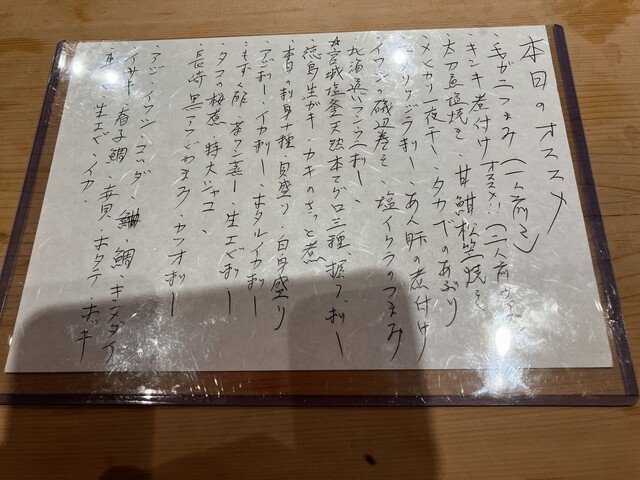 本日のオススメ
・毛ガニつまみ(一人前〜)
・キンキ煮付け オススメ!
・太刀魚塩焼き ・甘鯛松笠焼き
・メヒカリ一夜干し ・タカベのあぶり
クジラ刺し ・あん肝の煮付け
イワシの磯辺巻き ・塩イクラのつまみ
・北海道バフンウニ刺し
☆宮城塩釜天然本マグロ三種、握り、刺し
・徳島生ガキ ・カキのさっと煮
・本日の刺身十種・貝盛り・白身盛り
・アジ刺し・イカ刺し・ホタルイカ刺し
・もずく酢・茶ワン蒸し・生エビ刺し
・タコの桜煮・特大シャコ
・長崎黒アワビつまみ・カツオ刺し
アジ・イワシ・コハダ・鯛・キンメダイ
イサキ・春子鯛・赤貝・ホタテ・ホッキ
生エビ・イカ